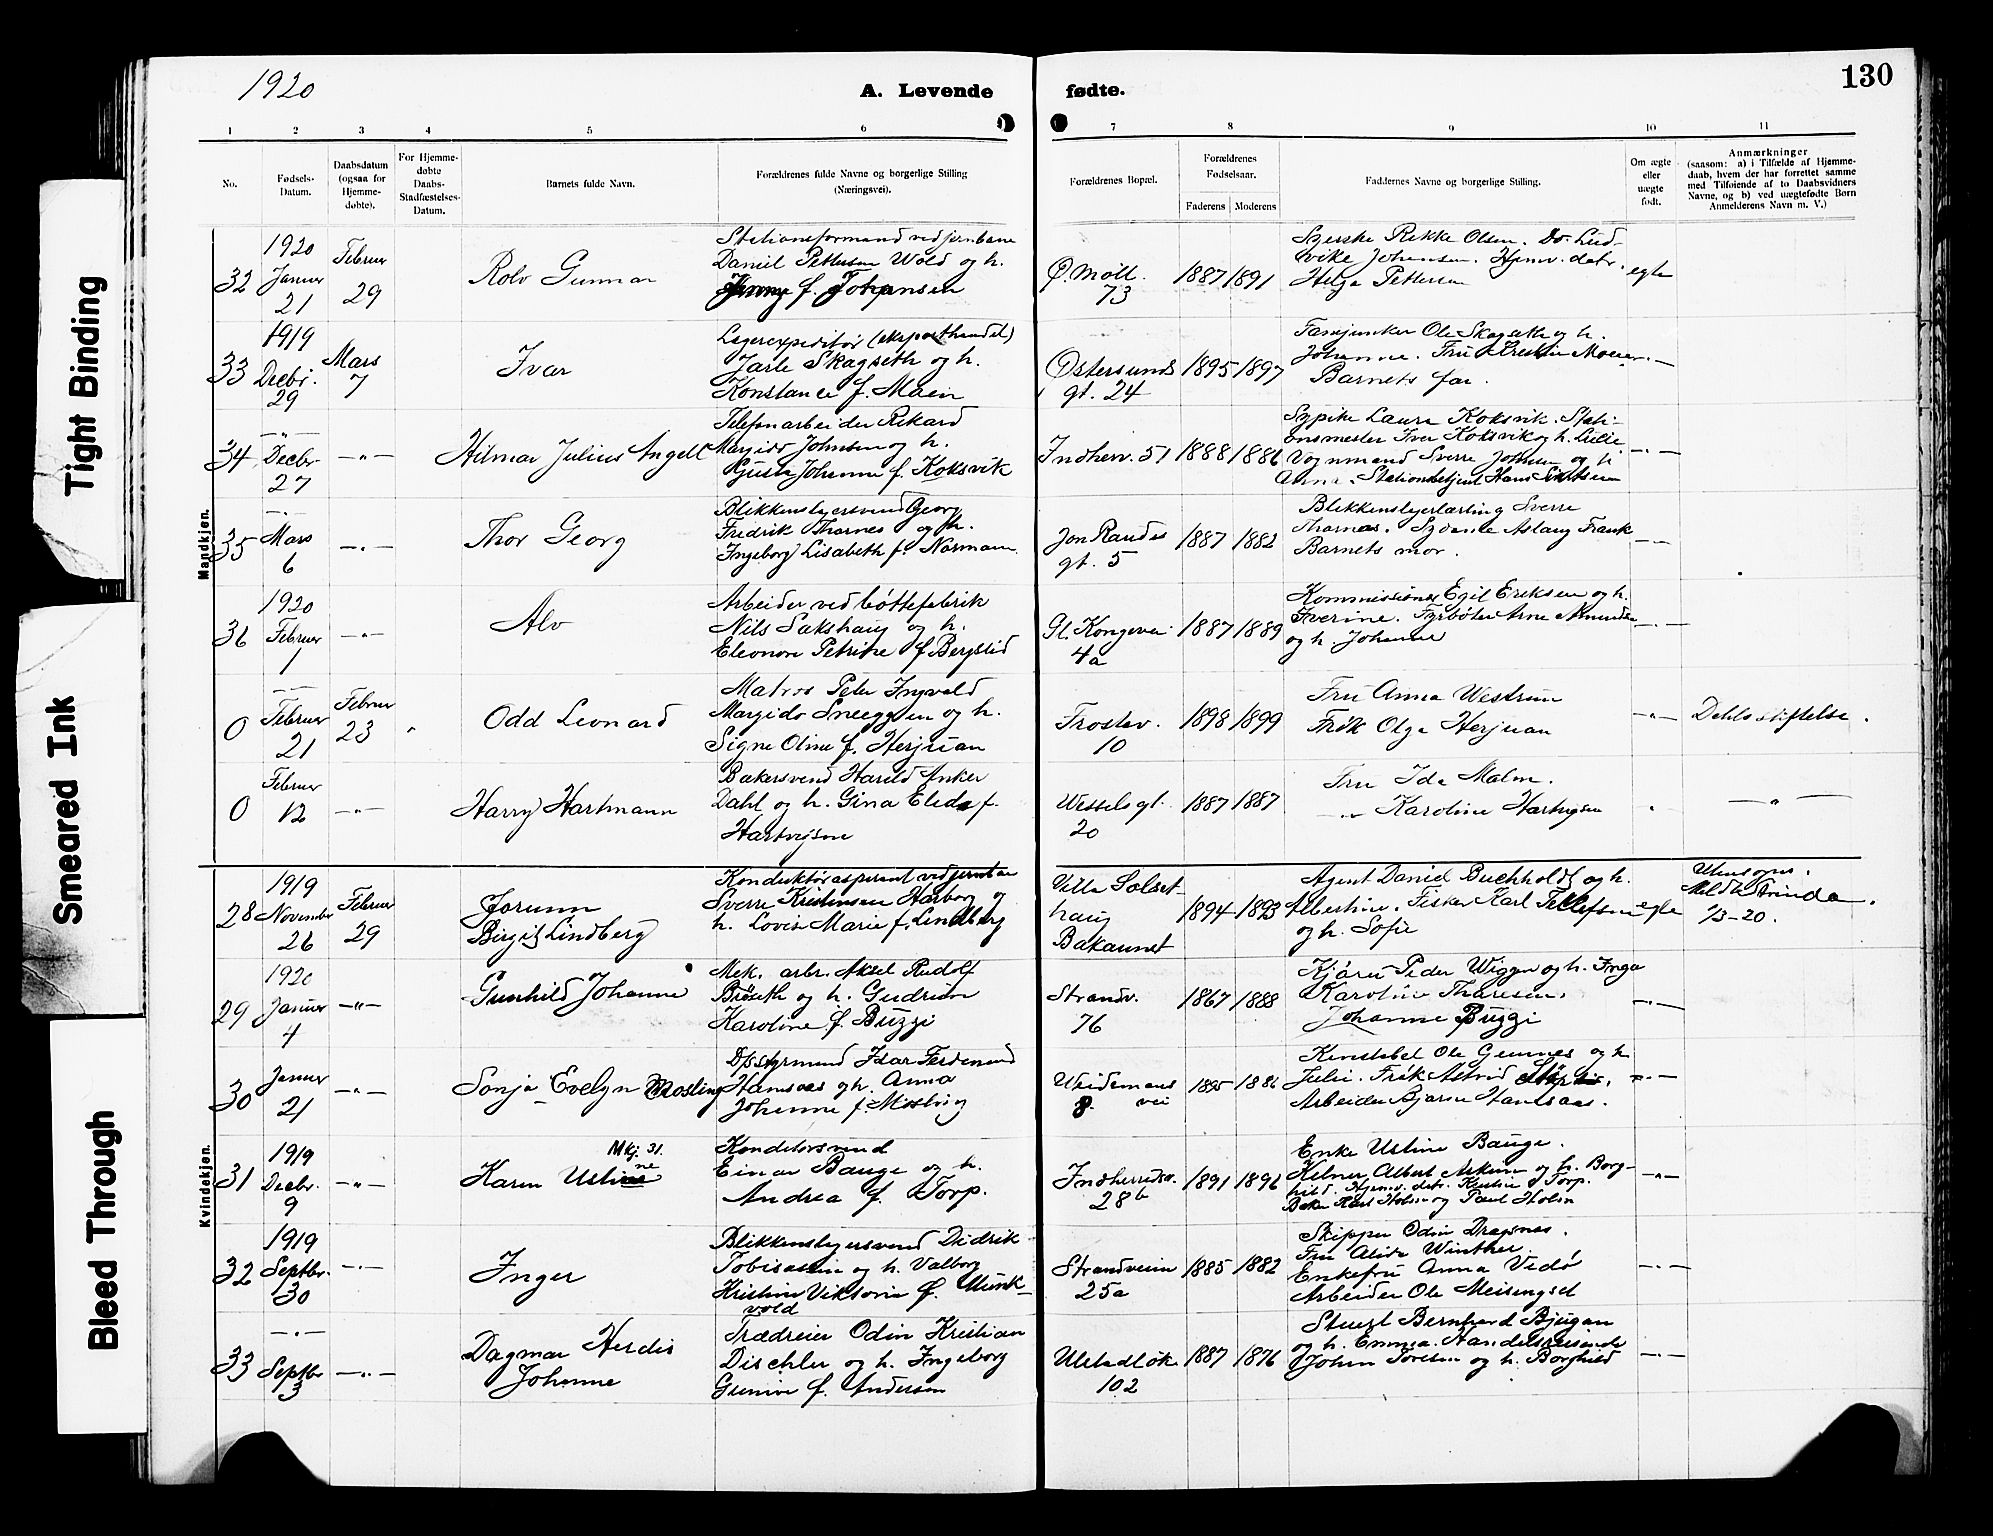 1920
A. Levende
fødte.
130
1 2 3 4 5 6 7 8 9 10 11
No.
Fødsels-
Datum.
Daabsdatum
(ogsaa for
Hjemme-
døbte).
For Hjemme-
døbte
Daabs-
Stadfæstelses-
Datum.
Barnets fulde Navn.
Forældrenes fulde Navne og borgerlige Stilling
(Næringsvei).
Forældrenes Bopæl.
Forældrenes
Fødselsaar.
Faderens
Moderens
Faddernes Navne og borgerlige Stilling.
Om ægte
eller
uægte
født.
Anmærkninger
(saasom: a) i Tilfælde af Hjemme-
daab, hvem der har forrettet samme
med Tilføiende af to Daabsvidners
Navne, og b) ved uægtefødte Børn
Anmelderens Navn m. V.)
Mandkjøn.
32
1920
Januar
21
Februar
29
Rolv Gunnar
Stationsformand ved jernbane
Daniel Pettersen Wold og h.
Jenny f. Johansen
Ø. Møll.
73
1887 1891
Syerske Rikke Olsen. Do. Lud-
vike Johansen. Hjmv. datr.
Helga Pettersen
egte
33
1919
Decbr.
29
Mars
7
Ivar
Lagerexpeditør (eksporthandel)
Jarle Skagseth og h.
Konstance f. Moen
Østersunds
gt. 24
1895 1897
Fanejunker Ole Skagseth og h.
Johanne. Fru Kristin Moen
Barnets far.
34
Decbr.
27
Hilmar Julius Angell
Telefonarbeider Rikard
Margido Johnsen og h.
Gusta Johanne f. Koksvik
Indherv. 51
1888 1886
Sypike Laura Koksvik. Stati-
onsmester Iver Koksvik og h. Lilie
Vognmand Sverre Johnsen og h.
Anna. Stationsbetjent Hans Sivertsen
35
Mars
6
Thor Georg
Blikkenslagersvend Georg
Fredrik Tharnes og h.
Ingeborg Lisabeth f. Normann
Jon Raudes
gt. 5
1887 1882
Blikkenslagerlærling Sverre
Tharnes. Sydame Aslaug Frank
Barnets mor.
36
1920
Februar
1
Alv
Arbeider ved bøttefabrik
Nils Sakshaug og h.
Eleonore Petrine f. Bergslid
Gl. Kongevei
4a
1887 1889
Kommissionær Egil Eriksen og h.
Iverine. Fyrbøter Arne Amundsen
og h. Johanne
0
Februar
21
Februar
23
Odd Leonard
Matros Peter Ingvald
Margido Sneeggen og h.
Signe Oline f. Herjuan
Trostev.
10
1898 1899
Fru Anna Westrum
Frøk Olga Herjuan
Dahls stiftelse.
0
Februar
12
Harry Hartmann
Bakersvend Harald Anker
Dahl og h. Gina Elida f.
Hartvigsen
Wessels gt.
20
1887 1887
Fru Ida Malm.
Karoline Hartvigsen
Kvindekjøn.
28
1919
November
26
Februar
29
Jorunn
Birgit Lindberg
Konduktøraspirant ved jernbane
Sverre Kristensen Harborg og
h. Lovise Marie f. Lindberg
Villa Solset-
haug
Bakaunet
1894 1893
Agent Daniel Buchholdt og h.
Albertine. Fisker Karl Tellefsen
og h. Sofie
egte
Utensogns.
Meldt Strinda.
1/3-20.
29
1920
Januar
4
Gunhild Johanne
Mek. arbr. Aksel Rudolf
Brøseth og h. Gudrun
Karoline f. Buzzi
Strandv.
76
1867 1888
Kjører Peder Wiggen og h. Inga
Karoline Tharesen.
Johanne Buzzi
30
Januar
21
Sonja Evelyn Mosling
Dpstyrmand Ivar Ferdinand
Hansaas og h. Anna
Johanne f. Mosling
Weidemans
8. vei
1895 1886
Konstabel Ole Gunnes og h.
Julie. Frøk Astrid
Arbeider Bjarne Hansaas.
31
1919
Decbr.
9
Mkj. 31.
Karen Ustine
Konditorsvend
Einar Bauge og h.
Andrea f. Torp.
Indherredsv.
28b
1891 1896
Enke Ustine Bauge.
Kelner Albert Askim og h. Borg-
hild. Hjemv. datr. Kristine Torp.
Baker Karl Holm og Paul Holm
32
1919
Septbr.
30
Inger
Blikkenslagersvend Didrik
Tobiassen og h. Valborg
Kristine Viktoria f. Munk-
vold
Strandveien
25a
1885 1882
Skipper Odin Dragsnes.
Fru Alida Winther.
Enkefru Anna Vidø
Arbeider Ole Meisingset
33
Septbr.
3
Dagmar Herdis
Johanne
Trædreier Odin Kristian
Dischler og h. Ingeborg
Gurine f. Andersen
Ulstadløk.
102
1887 1876
Stuert Bernhard Bjugan
og h. Emma. Handelsreisende
Johan Toresen og h. Borghild
Tight Binding
Smeared Ink
Bleed Through